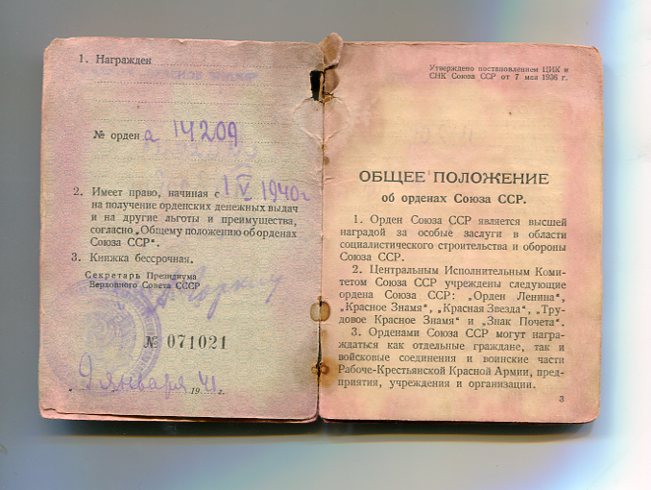 1. Награжден
№ орден а 14209
2. Имеет право, начиная с 1 V 1940г
на получение орденских денежных выдач
и на другие льготы и преимущества,
согласно „Общему положению об орденах
Союза ССР".
3. Книжка бессрочная.
Секретарь Президиума
Верховного Совета СССР
№ 071021
9 января 1941г.
Утверждено постановлением ЦИК и
СНК Союза ССР от 7 мая 1936 г.
ОБЩЕЕ ПОЛОЖЕНИЕ
об орденах Союза ССР.
1. Орден Союза ССР является высшей
наградой за особые заслуги в области
социалистического строительства и обороны
Союза ССР.
2. Центральным Исполнительным Коми-
тетом Союза ССР учреждены следующие
ордена Союза ССР: „Орден Ленина",
„Красное Знамя", „Красная Звезда", „Тру-
довое Красное Знамя" и „Знак Почета".
3. Орденами Союза ССР могут на-
граждаться как отдельные граждане, так и
войсковые соединения и воинские части
Рабоче-Крестьянской Красной Армии, пред-
приятия, учреждения и организации.
3